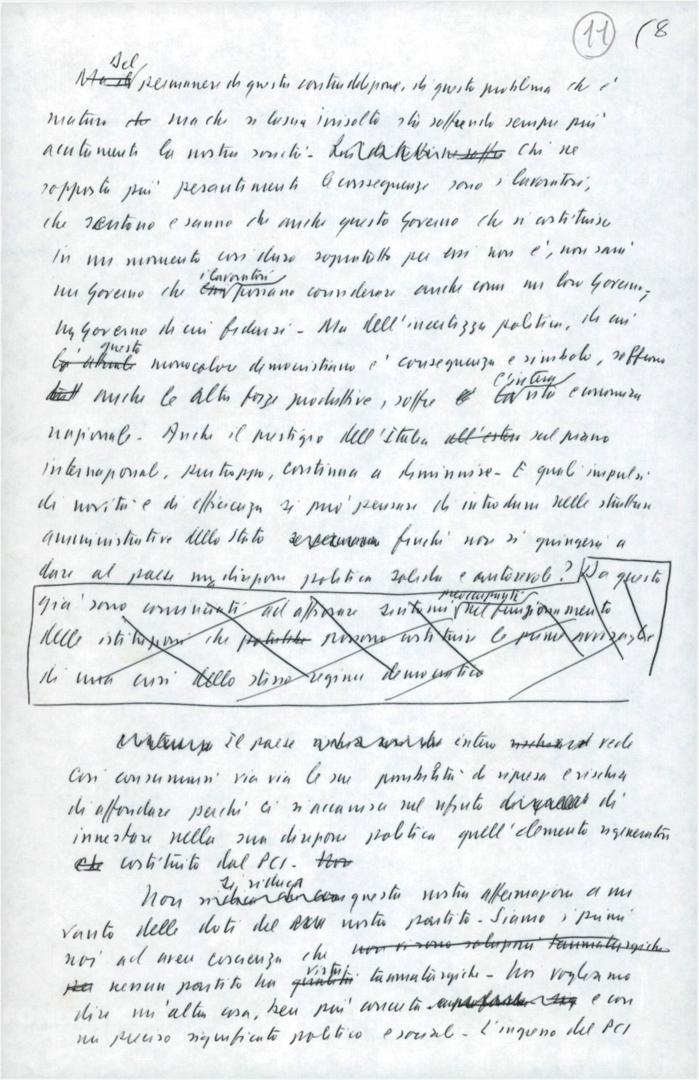 11 8
Del
permanere di questa contraddizione, di questo problema che è
maturo ma che si lascia irrisolto sta soffrendo sempre più
acutamente la nostra società - Chi ne
sopporta più pesantemente le conseguenze sono i lavoratori,
che sentono e sanno che anche questo Governo che si costituisce
in un momento così duro soprattutto per essi non è, non sarà
i lavoratori
un Governo che possano considerare anche come un loro Governo,
un Governo di cui fidarsi - Ma dell'incertezza politica, di cui
questo
monocolore democristiano è conseguenza e simbolo, soffrono
l'intera
anche le altre forze produttive, soffre economia
nazionale - Anche il prestigio dell'Italia all'estero sul piano
internazional, purtroppo, continua a diminuire - E quali impulsi
di novità e di efficienza si può pensare di introdurre nelle strutture
amministrative dello Stato finché non si giungerà a
dare al paese una direzione politica solida e autorevole? Da questo
preoccupanti
già sono cominciati ad affiorare sintomi nel funzionamento
delle istituzioni che possono costituire le prime avvisaglie
di una crisi dello stesso regime democratico
Il paese intero vede
così consumarsi via via le sue possibilità di ripresa e rischia
di affondare perché ci si accanisce nel rifiuto di
innestare nella sua direzione politica quell'elemento rigeneratore
costituito dal PCI -
si riduca
Non questa nostra affermazione a un
vanto delle doti del nostro partito - Siamo i primi
noi ad avere coscienza che non vi sono soluzioni taumaturgiche
virtù
nessun partito ha taumaturgiche - Noi vogliamo
dire un'altra cosa, ben più concreta e con
un preciso significato politico e sociale - L'ingresso del PCI